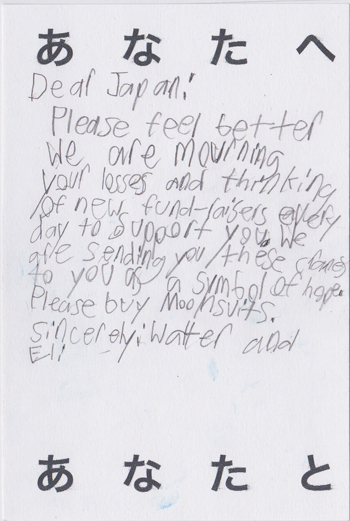 あなたへ
Dear Japan:
Please feel better
We are mourning
your losses and thinking
of new fund-raisers every
day to support you. We
are sending you these cranes
to you as a symbol of hope.
Please buy Moonsuits.
Sincerely: Walter and
Eli
あなたと